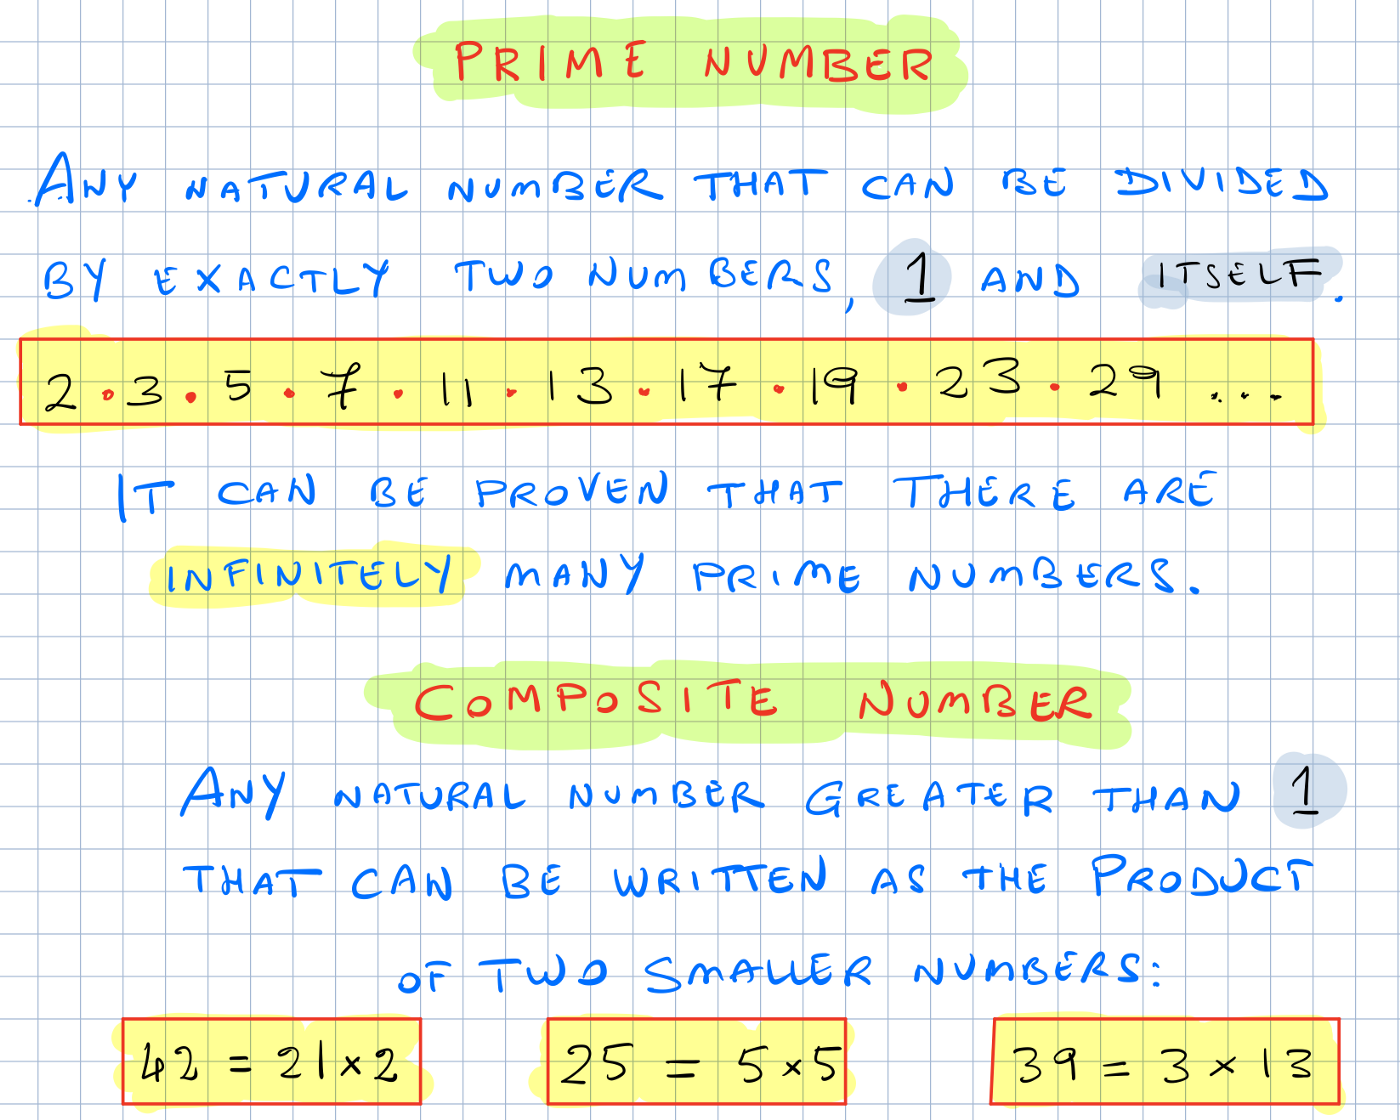 PRIME NUMBER
ANY NATURAL NUMBER THAT CAN BE DIVIDED
BY EXACTLY TWO NUMBERS, 1 AND ITSELF.
2 · 3 · 5 · 7 · 11 · 13 · 17 · 19 · 23 · 29 ...
IT CAN BE PROVEN THAT THERE ARE
INFINITELY MANY PRIME NUMBERS.
COMPOSITE NUMBER
ANY NATURAL NUMBER GREATER THAN 1
THAT CAN BE WRITTEN AS THE PRODUCT
OF TWO SMALLER NUMBERS:
42 = 21 × 2 25 = 5 × 5 39 = 3 × 13